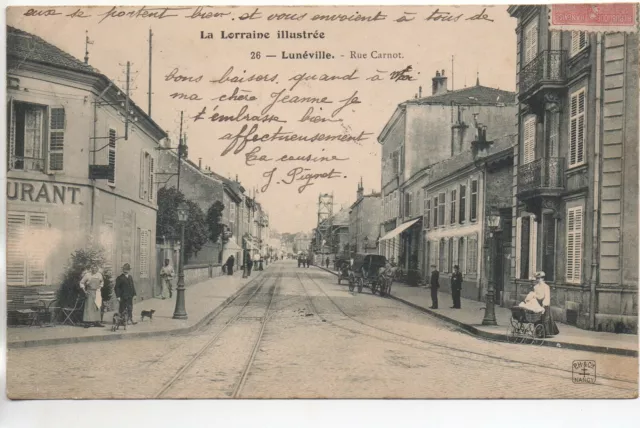 eux se portent bien et vous envoient à tous de
La Lorraine illustrée
26 — Lunéville. - Rue Carnot.
bons baisers, quand à
ma chère Jeanne je
t'embrasse bien
affectueusement
Ta cousine
J. Pignet
URANT.
PH & Co
NANCY